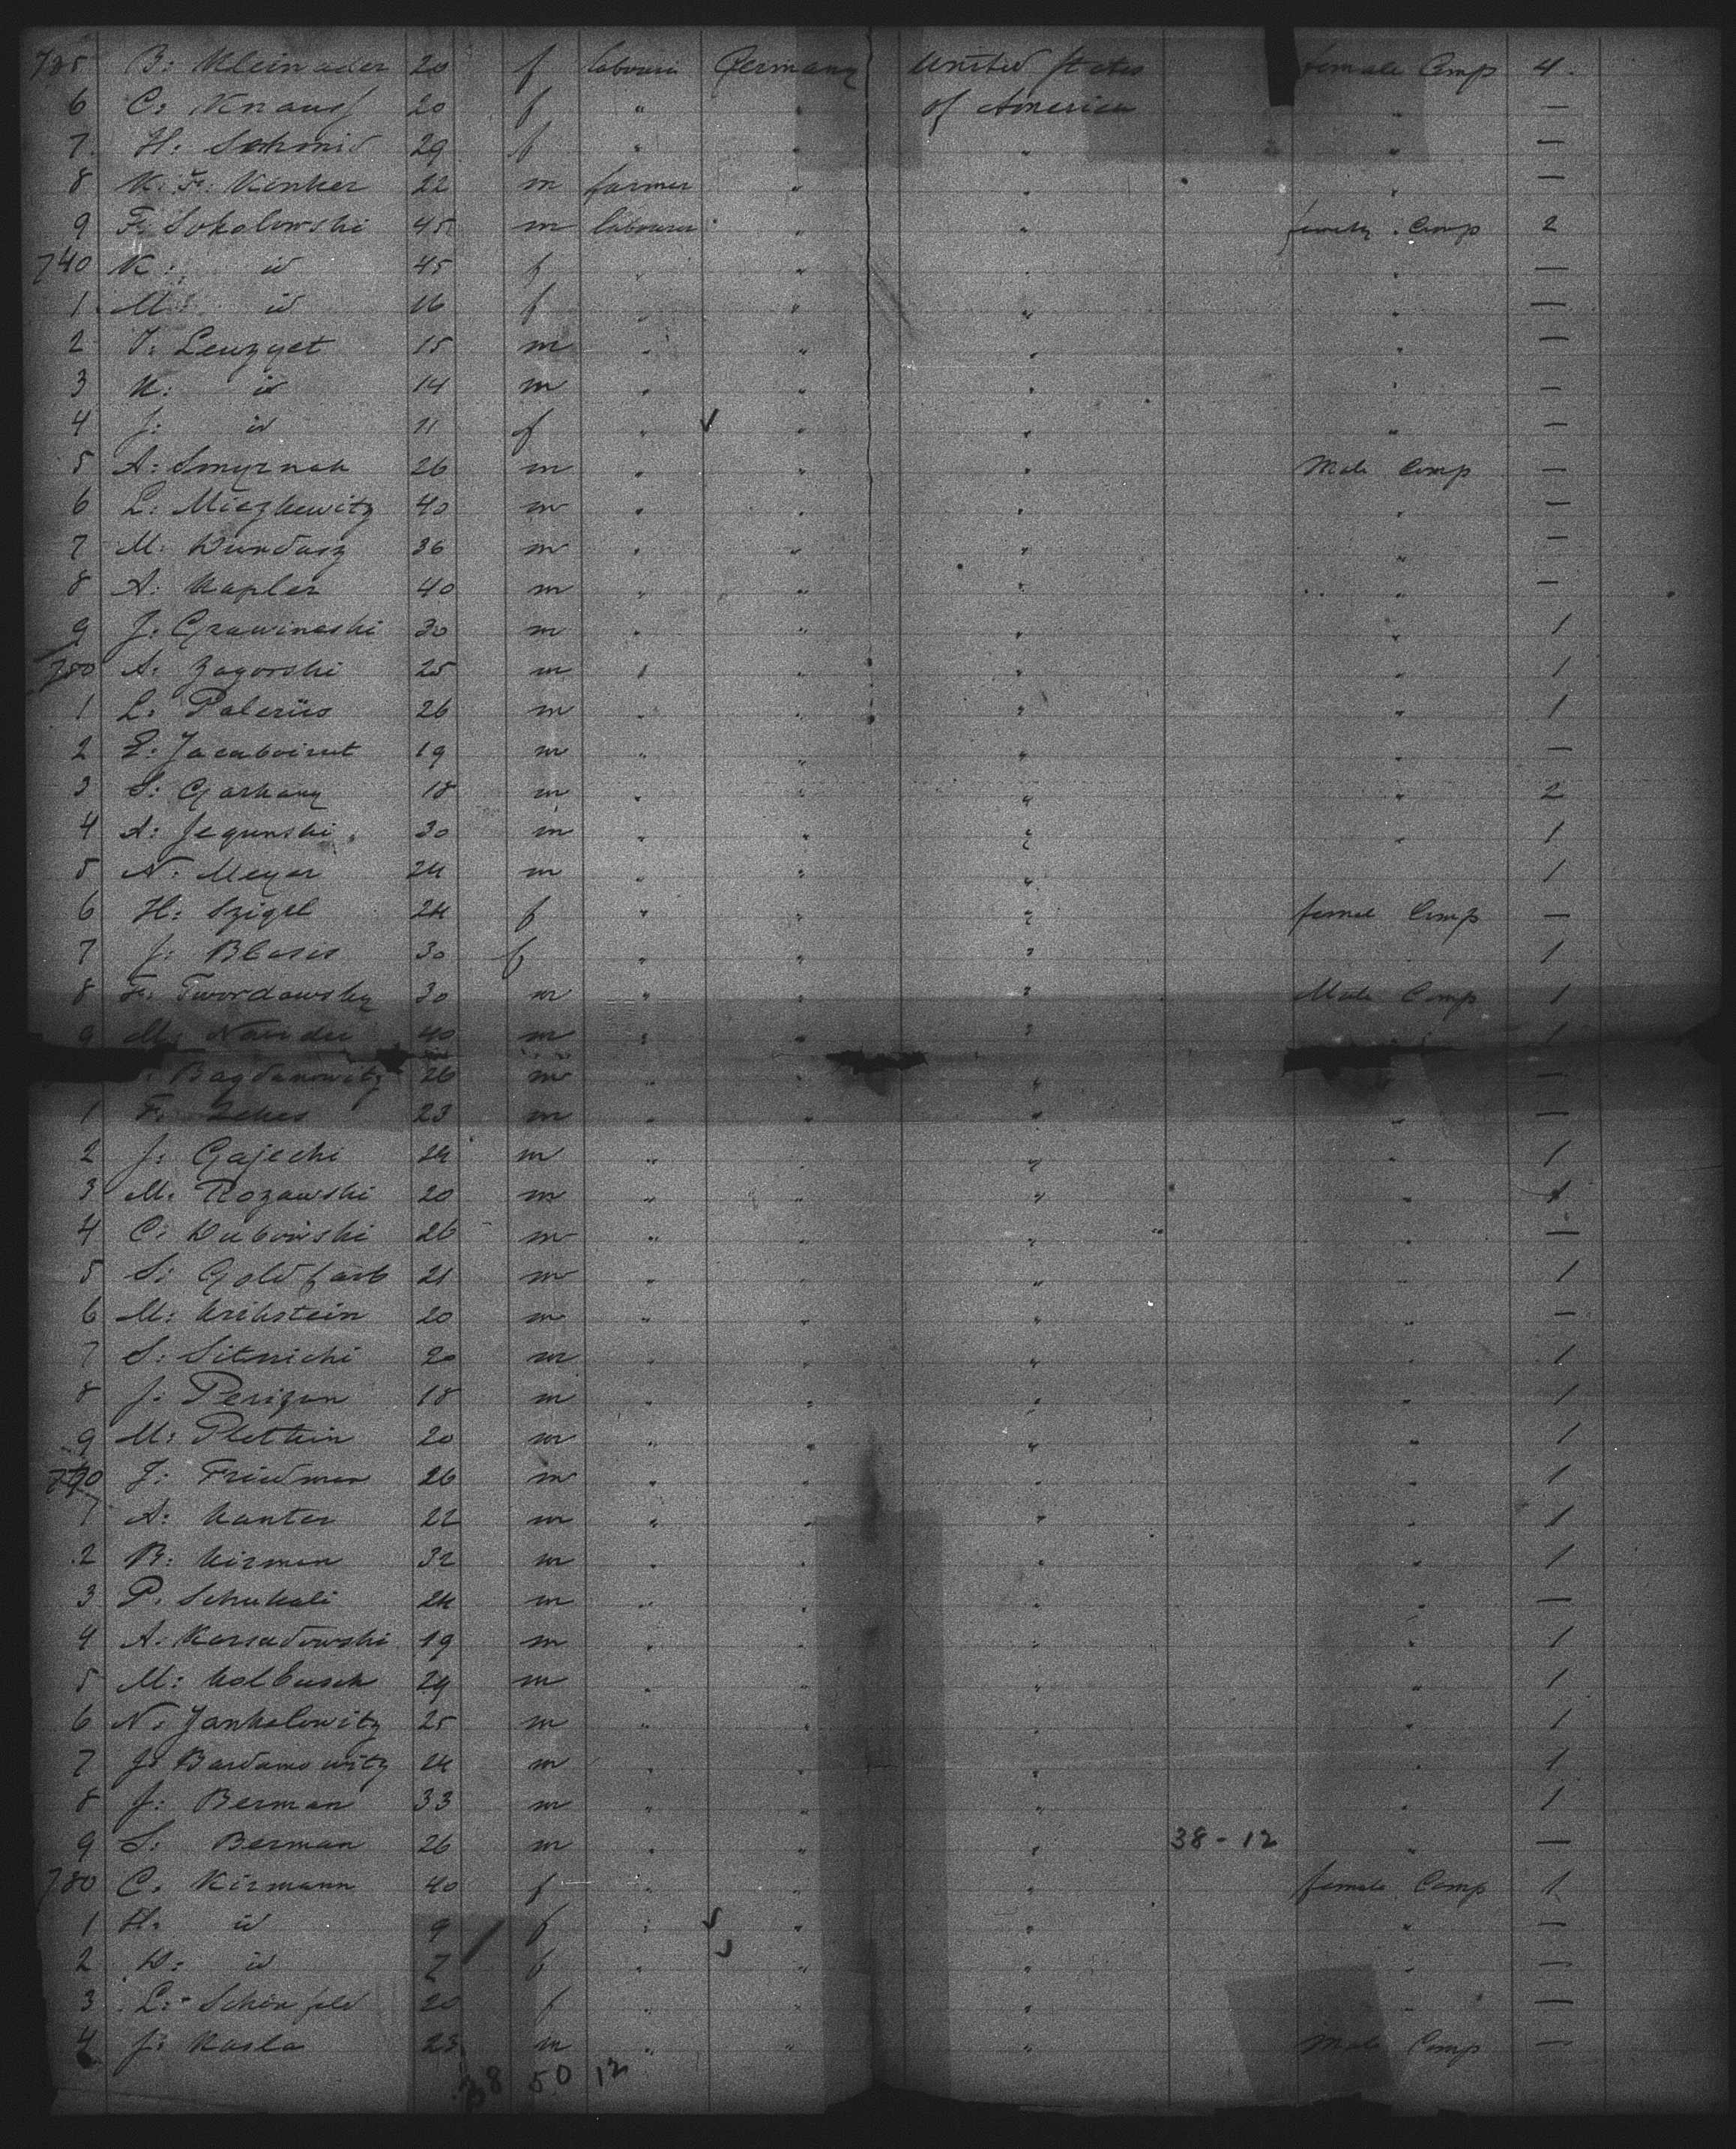 735 B: Kleinader 20 f labourer Germany United States female Comp 4
6 C: Knauf 20 f " " of America " —
7 H: Schmid 29 f " " " " —
8 K: F: Kenker 22 m farmer " " " —
9 F: Sokolowski 45 m labourer " " family Comp 2
740 K: id 45 f " " " " —
1 M: id 16 f " " " " —
2 J: Leuzyet 15 m " " " " —
3 K: id 14 m " " " " —
4 J: id 11 f " " " " —
5 A: Smyrnak 26 m " " " Male Comp —
6 L: Miezkewitz 40 m " " " " —
7 M: Dundasz 36 m " " " " —
8 A: Kapler 40 m " " " " —
9 J: Grawineski 30 m " " " " 1
750 A: Zagorski 25 m " " " " 1
1 L: Palerüs 26 m " " " " 1
2 E: Jacaboirut 19 m " " " " —
3 S: Garkauy 18 m " " " " 2
4 A: Jegunski 30 m " " " " 1
5 N: Meyer 24 m " " " 1
6 H: Szigel 24 f " " " female Comp —
7 J: Blases 30 f " " " 1
8 F: Twordawsky 30 m " " " Male Comp 1
9 M: 40 m " " " 1
Bagdanowitz 26 m " " " —
1 F: 23 m " " " " —
2 J: Gajecki 24 m " " " " 1
3 M: Rozawski 20 m " " " " 1
4 C: Dubowski 26 m " " " " —
5 S: Goldfarb 21 m " " " " 1
6 M: Krikstein 20 m " " " " —
7 S: Sitnicki 20 m " " " " 1
8 J: Perizon 18 m " " " " 1
9 M: Plettin 20 m " " " " 1
770 J: Friedman 26 m " " " " 1
1 A: Kanter 22 m " " " " 1
2 B: Kirman 32 m " " " " 1
3 P: Schukali 24 m " " " " —
4 A: Karsadowski 19 m " " " " 1
5 M: Kolbusch 24 m " " " " 1
6 N: Jankelowitz 25 m " " " " 1
7 J: Bardamowitz 24 m " " " " 1
8 J: Berman 33 m " " " " 1
9 S: Berman 26 m " " " 38-12 " —
780 C: Kirmann 40 f " " " female Comp 1
1 H: id 9 f " " " " —
2 D: id 7 f " " " " —
3 L: Schönfeld 20 f " " " " —
4 J: Kasla 23 m " " " Male Comp —
38 50 12